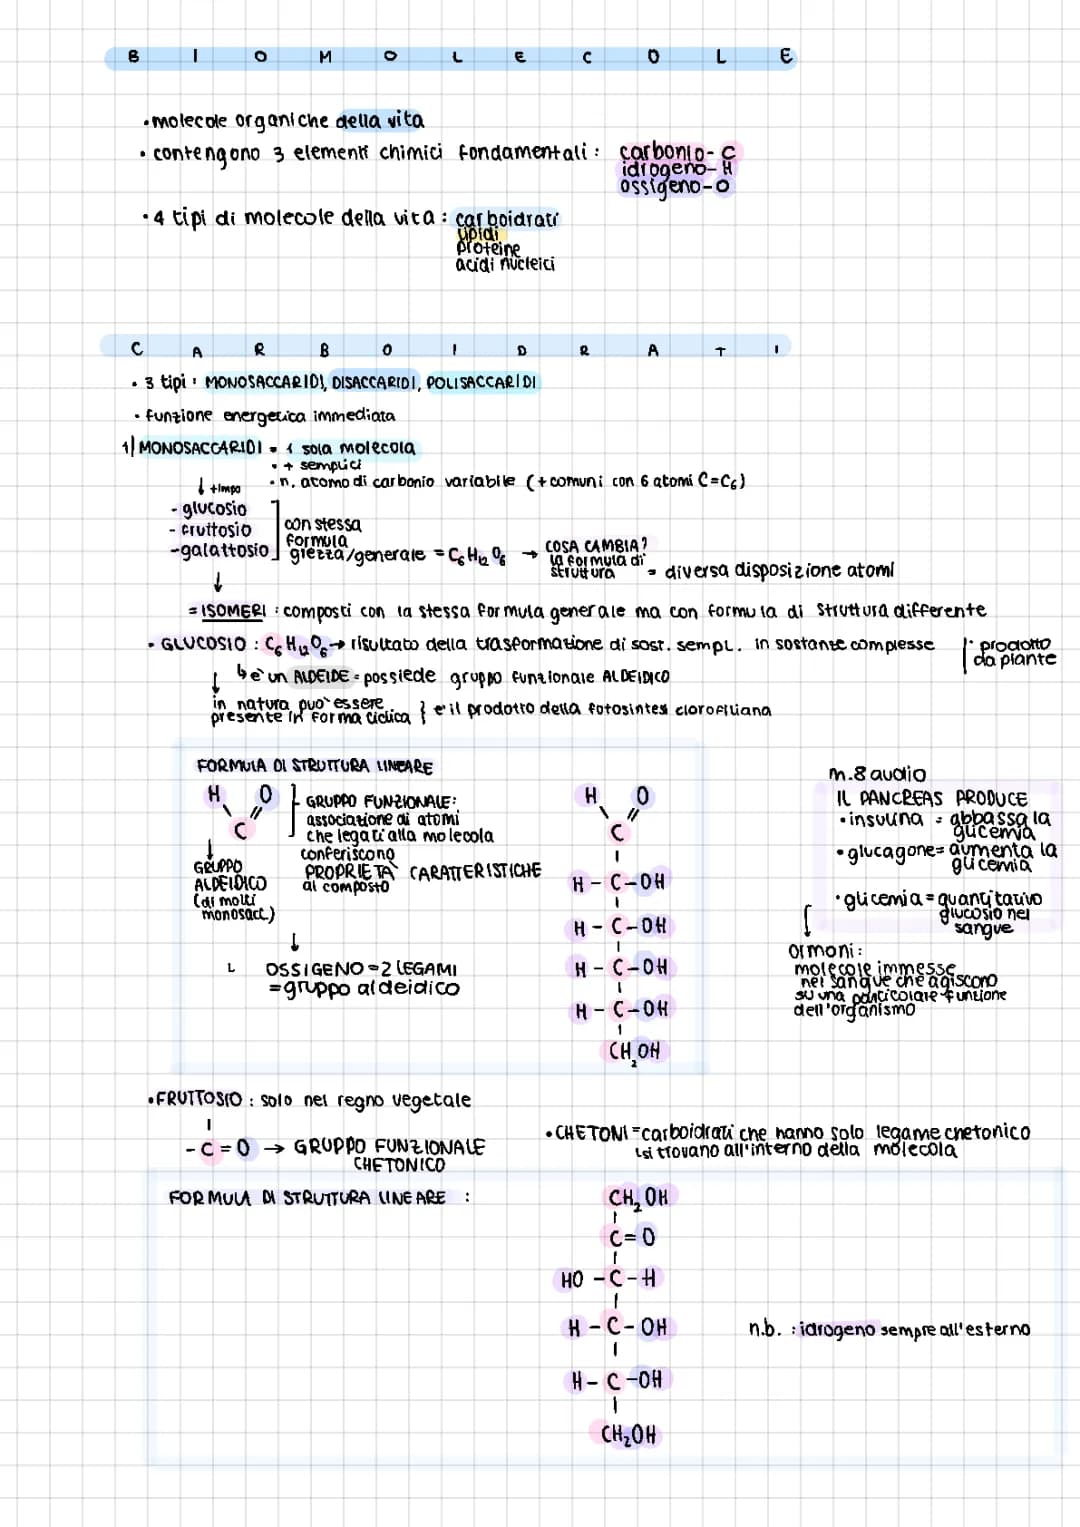 BIOMOLECOLE
•molecole organiche della vita
• contengono 3 elementi chimici fondamentali: carbonio-C
idrogeno-H
ossigeno-O
•4 tipi di molecole della vita: carboidrati
lipidi
proteine
acidi nucleici
CARBOIDRATI
• 3 tipi: MONOSACCARIDI, DISACCARIDI, POLISACCARIDI
• funzione energetica immediata
1) MONOSACCARIDI = 1 sola molecola
• + semplici
• n. atomo di carbonio variabile (+comuni con 6 atomi C=C6)
↓ +impo
- glucosio
- fruttosio
-galattosio
con stessa
formula
grezza/generale = C6H12O6 →
COSA CAMBIA?
la formula di
struttura = diversa disposizione atomi
↓
= ISOMERI: composti con la stessa formula generale ma con formula di struttura differente
• GLUCOSIO: C6H12O6 → risultato della trasformazione di sost. sempl. in sostanze complesse
• prodotto
da piante
è un ALDEIDE = possiede gruppo funzionale ALDEIDICO
in natura puo' essere
presente in forma ciclica } e' il prodotto della fotosintesi clorofilliana
FORMULA DI STRUTTURA LINEARE
H O
C
↓
GRUPPO
ALDEIDICO
(di molti
monosacc.)
GRUPPO FUNZIONALE:
associazione di atomi
che legati alla molecola
conferiscono
PROPRIETA' CARATTERISTICHE
al composto
↓
L OSSIGENO=2 LEGAMI
=gruppo aldeidico
H O
C
H-C-OH
H-C-OH
H-C-OH
H-C-OH
CH2OH
m.8 audio
IL PANCREAS PRODUCE
•insulina = abbassa la
glicemia
•glucagone= aumenta la
glicemia
•glicemia = quantitativo
glucosio nel
sangue
ormoni:
molecole immesse
nel sangue che agiscono
su una particolare funzione
dell'organismo
•FRUTTOSIO: solo nel regno vegetale
-C=O → GRUPPO FUNZIONALE
CHETONICO
•CHETONI =carboidrati che hanno solo legame chetonico
↳si trovano all'interno della molecola
FORMULA DI STRUTTURA LINEARE :
CH2OH
C=O
HO-C-H
H-C-OH
H-C-OH
CH2OH
n.b. : idrogeno sempre all'esterno